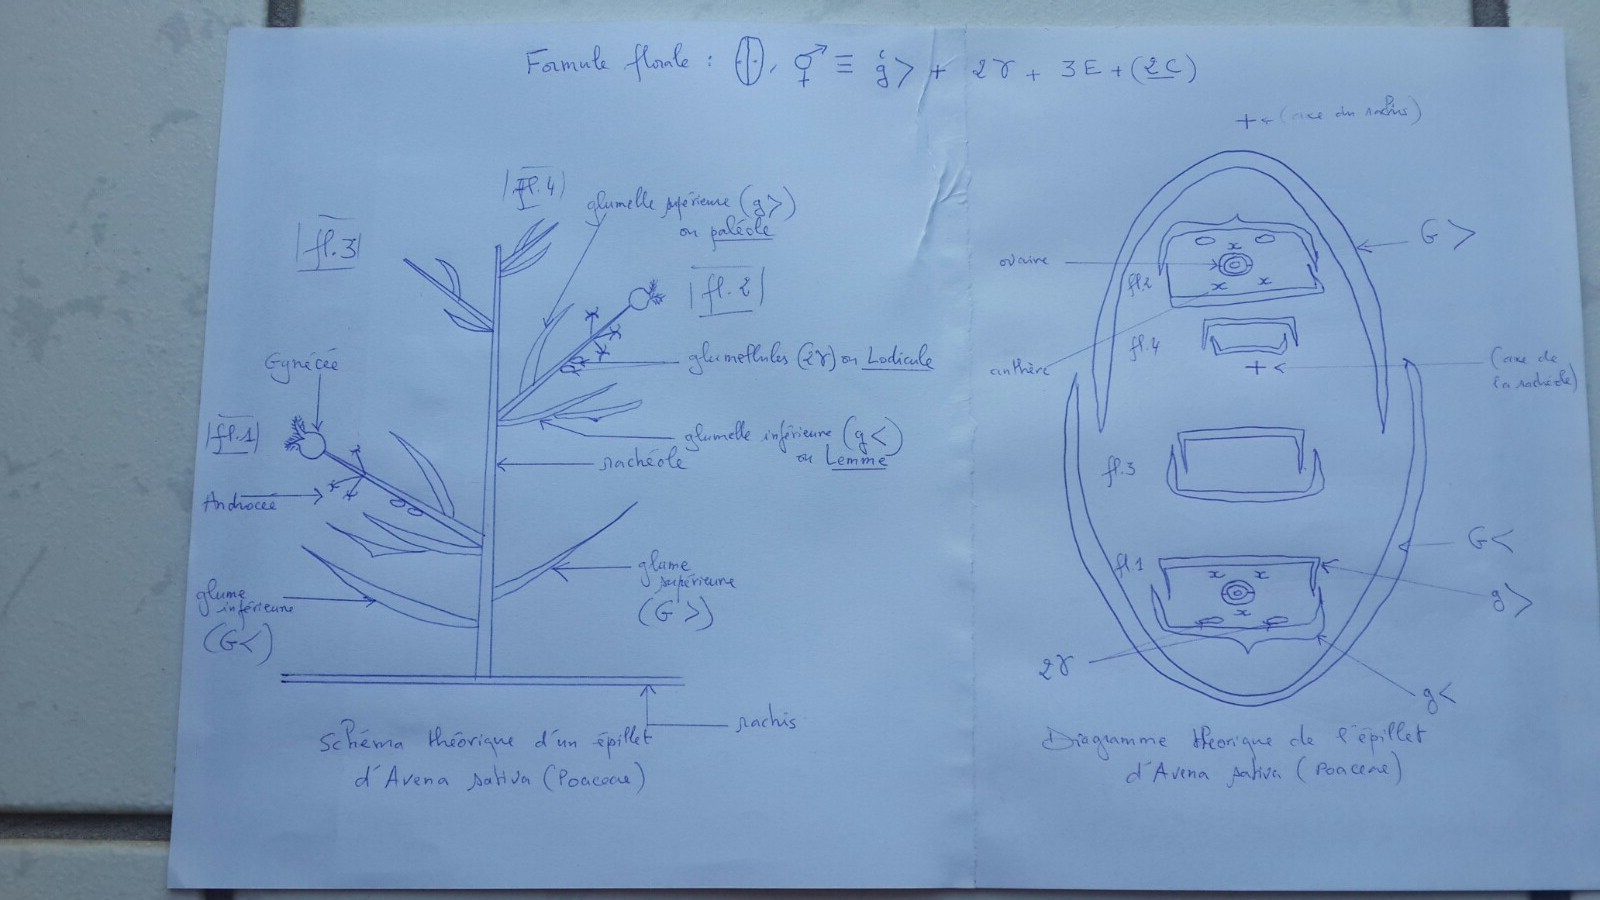 Formule florale : , ⚥ ≡ g> + 2γ + 3E + (2C)
+ ← (axe du rachis)
|fl.4|
glumelle supérieure (g>)
ou paléole
|fl.3|
|fl.2|
glumellules (2γ) ou Lodicule
Gynécée
|fl.1|
glumelle inférieure (g<)
ou Lemme
rachéole
Androcée
glume
supérieure
(G>)
glume
inférieure
(G<)
rachis
Schéma théorique d'un épillet
d'Avena sativa (Poaceae)
G>
ovaire
fl.2
fl.4
anthère
+ <
(axe de
la rachéole)
fl.3
G<
fl.1
g>
2γ
g<
Diagramme théorique de l'épillet
d'Avena sativa (Poaceae)